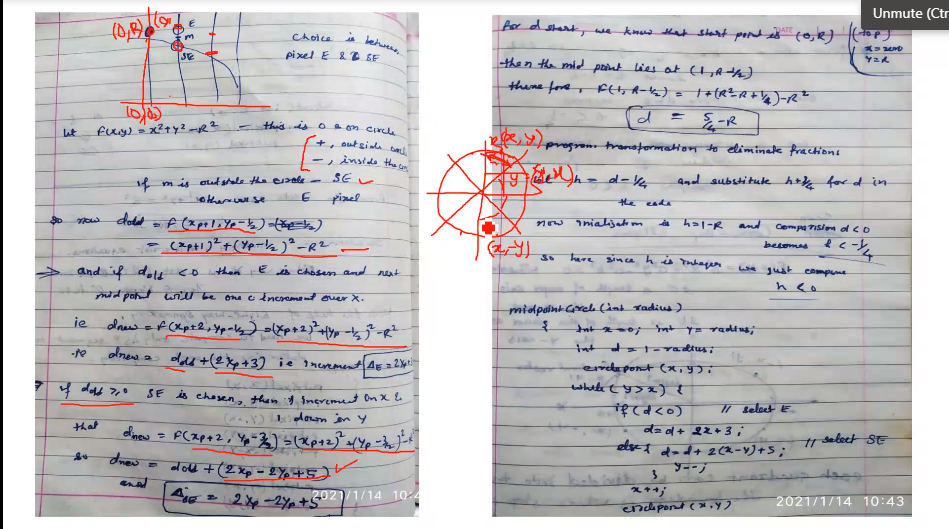 (0,R)
E
m
SE
choice is between
pixel E & SE
(0,0)
let F(x,y) = x²+y²-R² — this is 0 on circle
+, outside circle
-, inside the
if m is outside the circle - SE
otherwise E pixel
so now dold = f(xp+1, yp-1/2)
= (xp+1)² + (yp-1/2)² - R²
=> and if dold <0 then E is chosen and next
midpoint will be one increment over x.
ie dnew = f(xp+2, yp-1/2) = (xp+2)²+(yp-1/2)²-R²
dnew = dold + (2xp+3) ie increment ΔE = 2xp+
if dold ≥0 SE is chosen, then 1 increment on x &
1 down in y
that dnew = F(xp+2, yp-3/2) = (xp+2)²+(yp-3/2)²-R
so dnew = dold + (2xp-2yp+5)
and ΔSE = 2xp-2yp+5
2021/1/14 10:4
Unmute (Ctr
DATE
for d start, we know that start point is (0,R)
(top)
x=zero
y=R
then the mid point lies at (1, R-1/2)
therefore, F(1, R-1/2) = 1+(R²-R+1/4)-R²
d = 5/4 - R
(x,y)
program transformation to eliminate fractions
h = d-1/4 and substitute h+1/4 for d in
the code
y
(x,-y)
now initialisation is h=1-R and comparision d<0
becomes h < -1/4
so here since h is integer we just compare
h < 0
midpointcircle (int radius)
{ int x=0; int y= radius;
int d = 1-radius;
circlepoint (x,y);
while (y>x) {
if (d<0) // select E
d=d+ 2x+3;
else { d=d+2(x-y)+5; // select SE
y--;
}
x++;
circlepoint (x,y)
2021/1/14 10:43